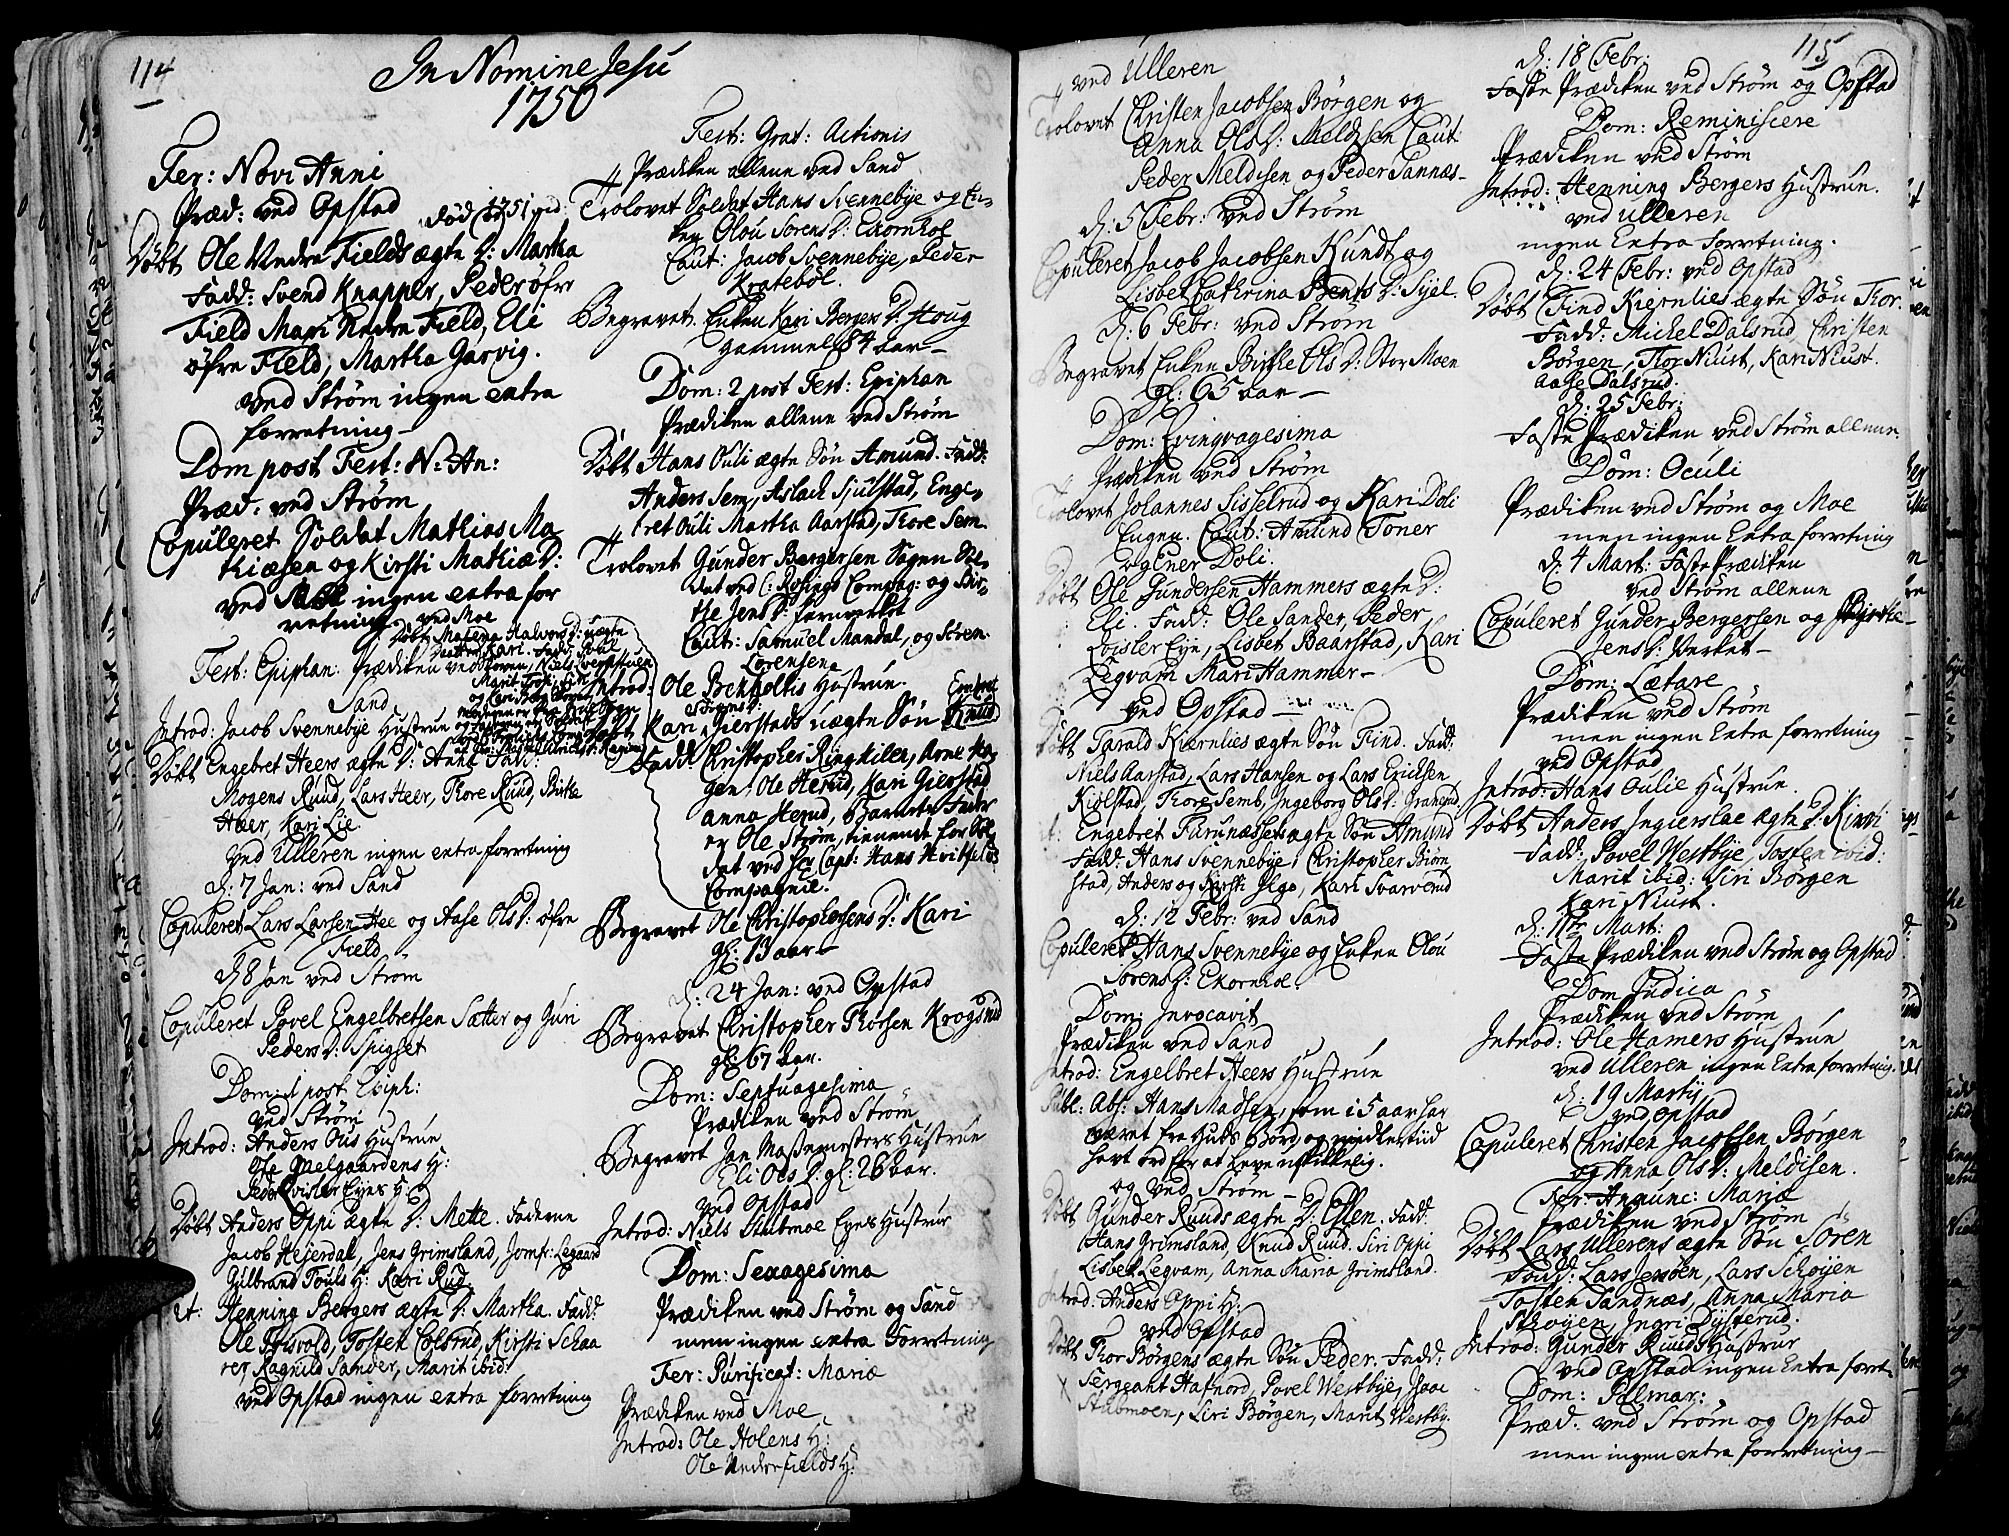 114
In Nomine Jesu
1750
Fer: Novi Anni
Præd: ved Opstad død 1751
Døbt Ole Nedre Fields ægte D: Martha
Fadd: Svend Knapper, Peder øfre
Field Mari Nedre Field, Eli
øfre Field, Martha Garvig.
ved Strøm ingen extra
forretning
Dom post Fest: N: An:
Præd. ved Strøm
Copuleret Soldat Mathias Ma
thiæsen og Kirsti MathiæD:
ved Moe ingen extra for
retning
ved Moe
Døbt Malena Halvors D: uægte
Datter Kari. Fadd:
Fest: Epiphan: Prædiken ved
Sand
Introd: Jacob Svennebye Hustrue
Døbt Engebret Heers ægte D: Anne Fadd:
Mogens Ruud, Lars Heer, Thore Ruud, Birthe
Heer, Kari Lie
ved Ulleren ingen extra forretning
d: 7 Jan: ved Sand
Copuleret Lars Larsen Hee og Aase Ols D: øfre
Field
d 8 Jan ved Strøm
Copuleret Povel Engelbretsen Sætter og Guri
Peders D: Spigset
Dom: 1 post Epiph:
ved Strøm
Introd: Anders Olis Hustrue
Ole Gaelgaardens H:
Peder Qvisler Eyes H:
Døbt Anders Oppi ægte D: Mette. Faderne
Jacob Heyerdal, Jens Grimsland, Jomfr: Legaard
Gulbrand Fouls H: Kari Rud
et: Henning Bergers ægte D: Martha. Fadd:
Ole Frisvold, Tosten Colsrud, Kirsti Schaa
rer, Ragnild Sander, Marit ibid:
ved Opstad ingen extra forretning
Fest: Grat: Actionis
Prædiken allene ved Sand
Trolovet Soldat Hans Svennebye og En-
ken Olou Sorens D: Ekornhol
Caut: Jacob Svennebye, Peder
Kratebøl.
Begravet Enken Kari Bergers D: Houg
gammel 84 aar
Dom: 2 post Fest: Epiphan
Prædiken allene ved Strøm
Døbt Hans Ouli ægte Søn Amund. Fadd:
Anders Sem, Aslach Sjulstad, Enge-
bret Ouli Martha Aarstad, Thore Sem
Trolovet Gunder Bergersen Sagen Sol-
dat ved C: Røsings Compag: og Bir-
the Jens D: Jernverket
Caut: Samuel Mandal, og Søren
Lorensen
Introd: Ole Bekholtis Hustrue.
Døbt Kari Gierstads uægte Søn Knud
Fadd: Christopher Ringkilen, Arne Ha-
gen, Ole Herud, Kari Gierstad
Anna Herud, Barnets Fader
er Ole Strøm, tienende for Sol
dat ved Hr Capt: Hans Hvitfelds
Compagnie.
Begravet Ole Christophersens D: Kari
gl: 13 aar
d: 24 Jan: ved Opstad
Begravet Christopher Thorsen Krogsrud
gl: 67 aar.
Dom: Septuagesima
Prædiken ved Strøm
Begravet Jan Masmesters Hustrue
Eli Ols D. gl: 26 aar.
ved Opstad
Introd: Niels Stubmoe Eyes Hustrue
Dom: Sexagesima
Prædiken ved Strøm og Sand
men ingen extra Forretning
Fer: Purificat: Mariæ
Prædiken ved Moe
Introd: Ole Holens H:
Ole Nedre Fields H:
115
ved Ulleren
Trolovet Christen Jacobsen Børgen og
Anna Ols D: Meldisen Caut:
Peder Meldisen og Peder Sannæs
d: 5 Febr: ved Strøm
Copuleret Jacob Jacobsen Kundt og
Lisbet Cathrina Bents D: Syel.
d: 6 Febr: ved Strøm
Begravet Enken Birthe Ols D: Stor Moen
gl: 65 aar
Dom: Qvinqvagesima
Prædiken ved Strøm
Trolovet Johannes Sisselrud og Kari Doli
Engen. Caut: Amund Toner
og Ener Doli.
Døbt Ole Gundersen Hammers ægte D:
Eli. Fadd: Ole Sander, Peder
Qvisler Eye, Lisbet Baarstad, Kari
Legvam Mari Hammer
ved Opstad
Døbt Tarald Kiernlies ægte Søn Find. Fadd:
Niels Aarstad, Lars Hansen og Lars Ericksen
Kiølstad, Thore Semb, Ingeborg Ols D: Granerud
et: Engebret Furunæsses ægte Søn Amund
Fadd: Hans Svennebye, Christopher Biøn
stad, Anders og Kirsti Ilgo, Kari Svarverud
d: 12 Febr: ved Sand
Copuleret Hans Svennebye og Enken Olou
Sorens D: Ekornhol.
Dom: Invocavit
Prædiken ved Sand
Introd: Engelbret Heers Hustrue
Publ: Abs: Hans Madsen, som i 5 aar har
været fra Guds Bord, og midlertiid
havt ord for at leve uskikkelig.
og ved Strøm
Døbt Gunder Ruuds ægte D: Ellen. Fadd:
Hans Grimsland, Knud Ruud. Siri Oppi
Lisbet Legvam, Anna Maria Grimsland.
Introd: Anders Oppi H:
ved Opstad
Døbt Thor Børgens ægte Søn Peder. Fadd:
Sergeant Hafnord, Povel Westbye, Isaac
Stubmoen, Siri Børgen, Marit Westby.
d: 18 Febr:
Faste Prædiken ved Strøm og Opstad
Dom: Reminiscere
Prædiken ved Strøm
Introd: Henning Bergers Hustrue.
ved Ulleren
ingen Extra forretning.
d: 24 Febr: ved Opstad
Døbt Find Kiernlies ægte Søn Thor.
Fadd: Michel Dalsrud Christen
Børgen, Thor Niust, Kari Niust.
Aase Dalsrud.
d: 25 Febr:
Faste Prædiken ved Strøm allene.
Dom: Oculi
Prædiken ved Strøm og Moe
men ingen Extra forretning
d: 4 Mart: Faste Prædiken
ved Strøm allene
Copuleret Gunder Bergersen og Birthe
Jens D: Verket
Dom: Lætare
Prædiken ved Strøm
men ingen Extra forretning
ved Opstad
Introd: Hans Oulie Hustrue.
Døbt Anders Ingierslae ægte D: Kirsti
Fadd: Povel Westbye, Tosten ibid:
Marit ibid: Siri Børgen
Kari Niust.
d: 11te Mart:
Faste Prædiken ved Strøm og Opstad
Dom Judica
Prædiken ved Strøm
Introd: Ole Hamers Hustrue
ved Ulleren ingen Extra forretning.
d: 19 Martij
ved Opstad
Copuleret Christen Jacobsen Børgen
og Anna Ols D: Meldisen.
Fer: Annunc: Mariæ
Prædiken ved Strøm
Døbt Lars Ullerens ægte Søn Søren
Fadd: Lars Jersøen, Lars Schøyen
Tosten Sandnæs, Anna Maria
Skøyen, Ingri Dysterud.
Introd: Gunder Ruuds Hustrue
ved Opstad ingen Extra forret-
Dom: Palmar:
Præd. ved Strøm og Opstad
men ingen extra forretning